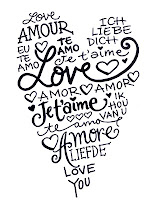 Love
AMOUR
ICH LIEBE DICH
EU TE AMO
TE AMO
Je t'aime
Love
AMOR
AMOR
Je t'aime
IK HOU VAN U
te amo
Amore
LIEFDE
LOVE
YOU